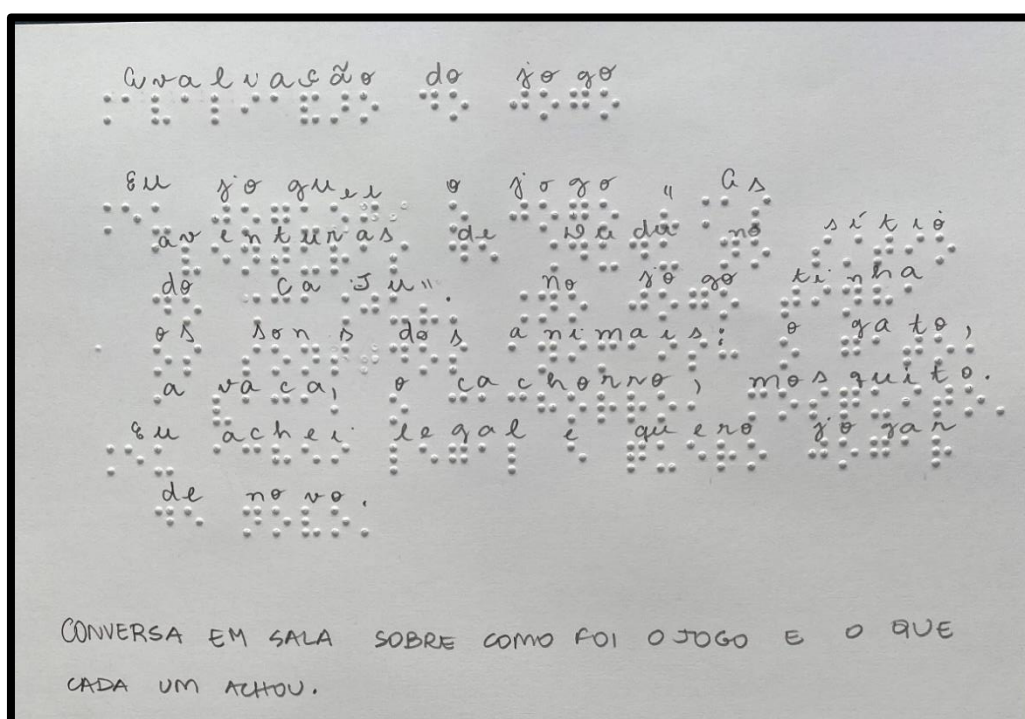 Avaliação do jogo
Eu joguei o jogo "As
aventuras de Duda no sítio
do Caju". no jogo tinha
os sons dos animais: o gato,
a vaca, o cachorro, mosquito.
Eu achei legal e quero jogar
de novo.
CONVERSA EM SALA SOBRE COMO FOI O JOGO E O QUE
CADA UM ACHOU.